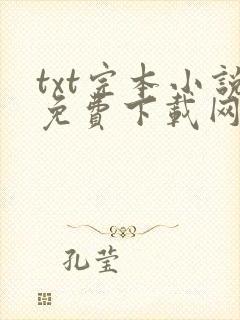 txt完本小说
免費下載网
孔莹